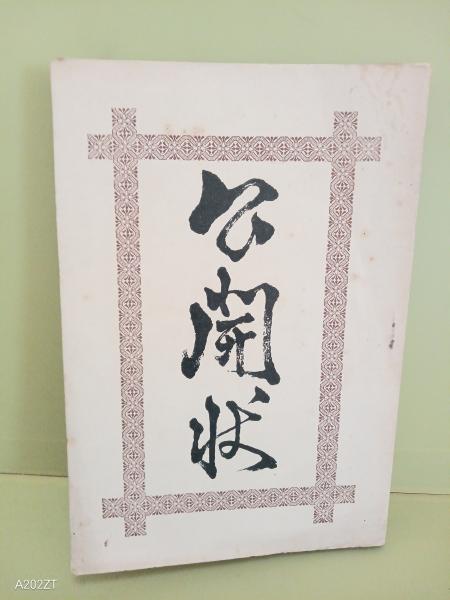 公開状
A202ZT